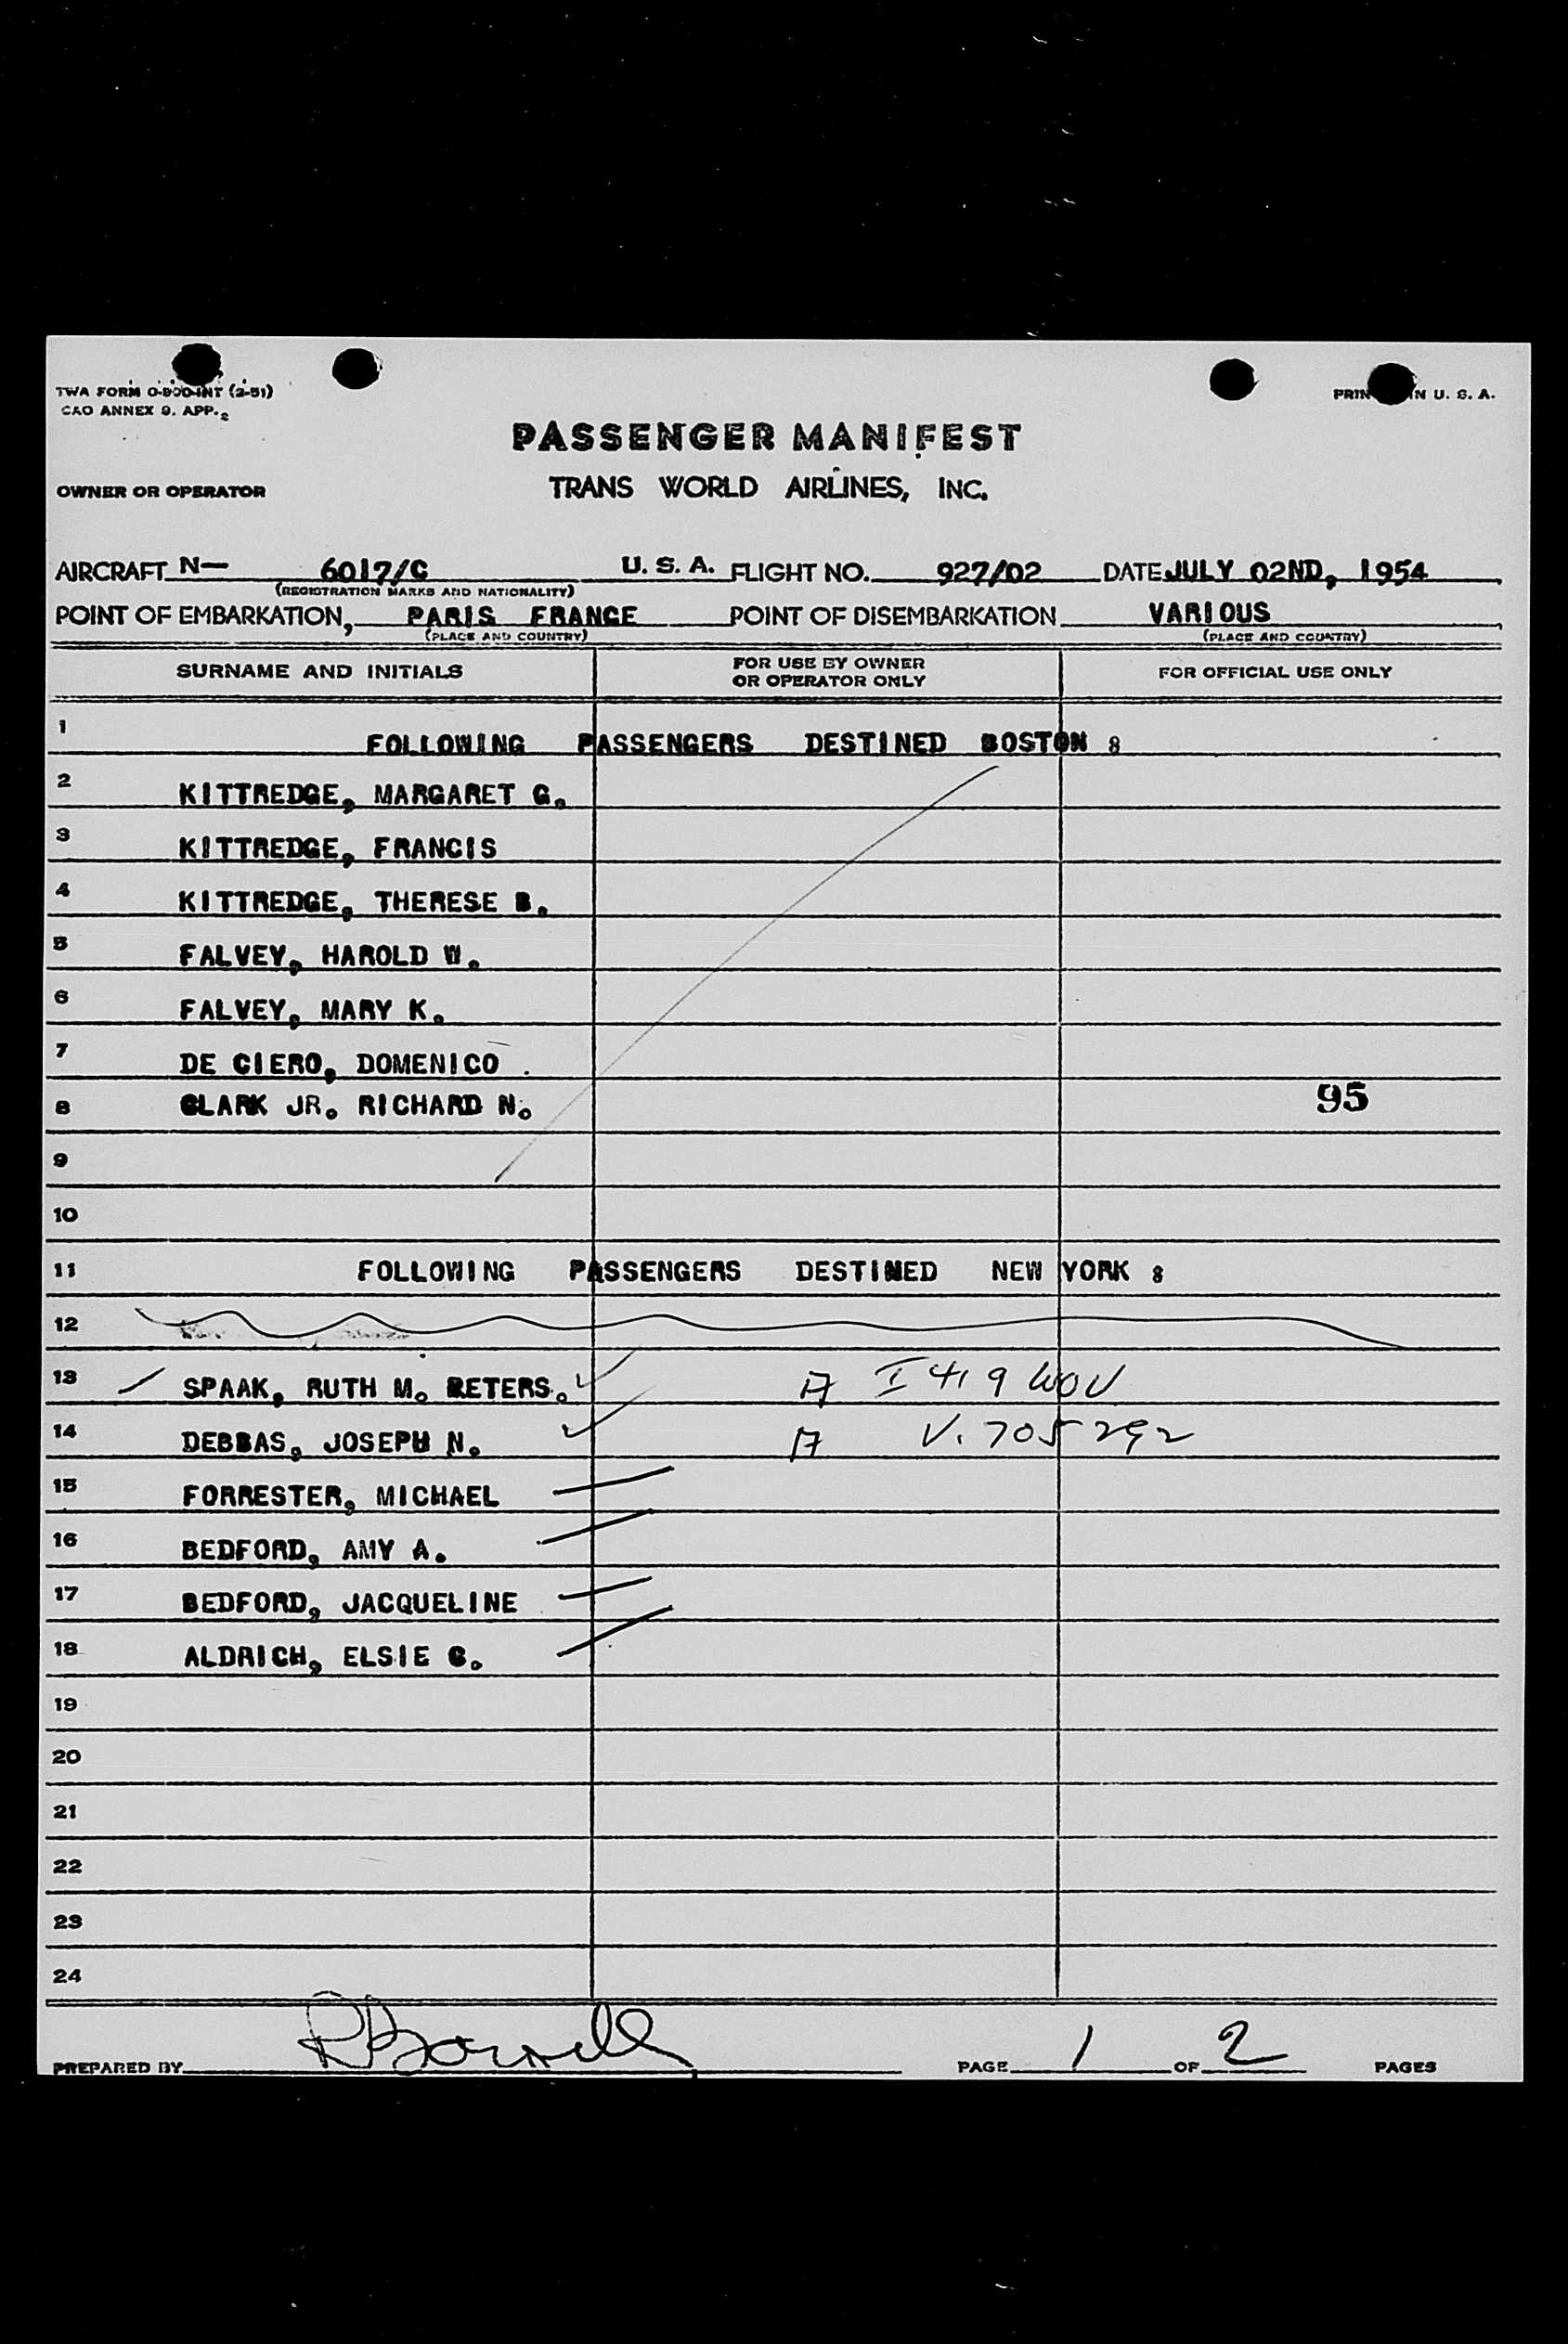 TWA FORM O-800-INT (2-51)
CAO ANNEX 9. APP. 2
IN U. S. A.
PASSENGER MANIFEST
OWNER OR OPERATOR TRANS WORLD AIRLINES, INC.
AIRCRAFT N— 6017/C U. S. A. FLIGHT NO. 927/02 DATE JULY 02ND, 1954
(REGISTRATION MARKS AND NATIONALITY)
POINT OF EMBARKATION, PARIS FRANCE POINT OF DISEMBARKATION VARIOUS
(PLACE AND COUNTRY) (PLACE AND COUNTRY)
SURNAME AND INITIALS FOR USE BY OWNER OR OPERATOR ONLY FOR OFFICIAL USE ONLY
1 FOLLOWING PASSENGERS DESTINED BOSTON :
2 KITTREDGE, MARGARET G.
3 KITTREDGE, FRANCIS
4 KITTREDGE, THERESE B.
5 FALVEY, HAROLD W.
6 FALVEY, MARY K.
7 DE CIERO, DOMENICO
8 CLARK JR. RICHARD N. 95
9
10
11 FOLLOWING PASSENGERS DESTINED NEW YORK :
12
13 SPAAK, RUTH M. PETERS. A I 419
14 DEBBAS, JOSEPH N. A V. 705292
15 FORRESTER, MICHAEL
16 BEDFORD, AMY A.
17 BEDFORD, JACQUELINE
18 ALDRICH, ELSIE C.
19
20
21
22
23
24
PREPARED BY PAGE 1 OF 2 PAGES